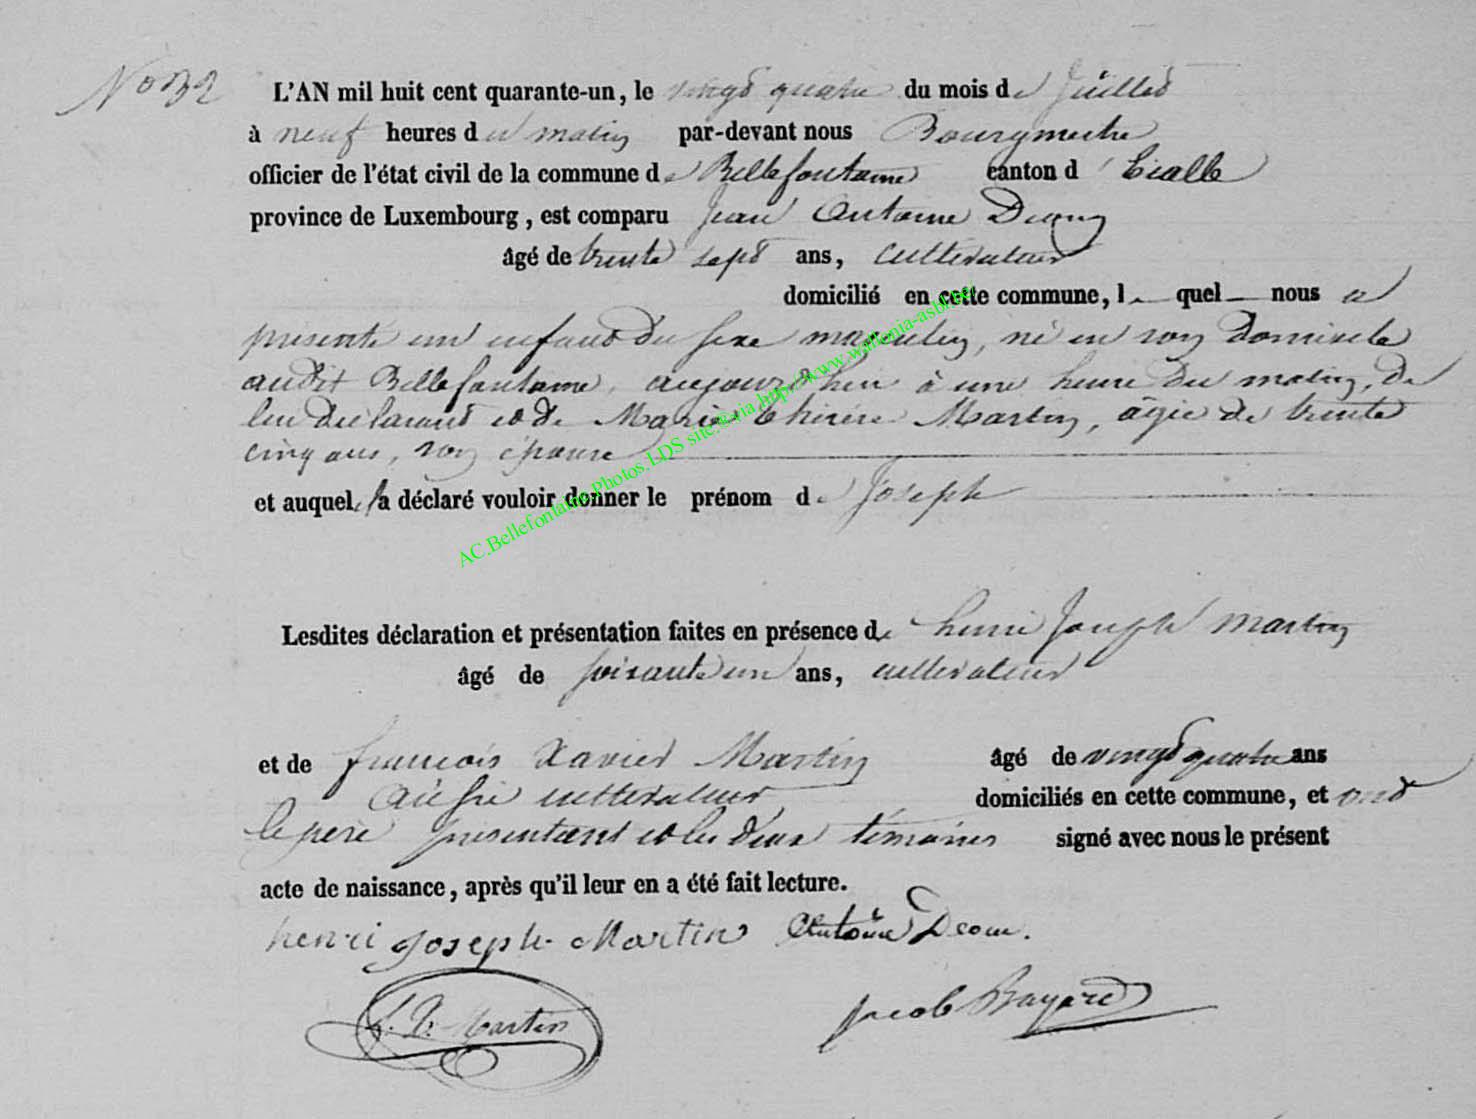 No 32
L'AN mil huit cent quarante-un, le vingt quatre du mois de Juillet
à neuf heures du matin par-devant nous Bourgmestre
officier de l'état civil de la commune de Bellefontaine canton d'Etalle
province de Luxembourg, est comparu Jean Antoine Deom
âgé de trente sept ans, cultivateur
domicilié en cette commune, lequel nous a
présenté un enfant du sexe masculin, né en son domicile
audit Bellefontaine, aujourd'hui à une heure du matin, de
lui déclarant et de Marie Thérèse Martin, âgée de trente
cinq ans, son épouse
et auquel il a déclaré vouloir donner le prénom de Joseph
AC.Bellefontaine.Photos.LDS site:©via http://www.wallonia-asbl.be/
Lesdites déclaration et présentation faites en présence de henri Joseph Martin
âgé de soixante un ans, cultivateur
et de françois Xavier Martin âgé de vingt quatre ans
cultivateur domiciliés en cette commune, et ont
le père présentant et les deux témoins signé avec nous le présent
acte de naissance, après qu'il leur en a été fait lecture.
henri Joseph Martin Antoine Deom.
f. X. Martin Jacob Bayard